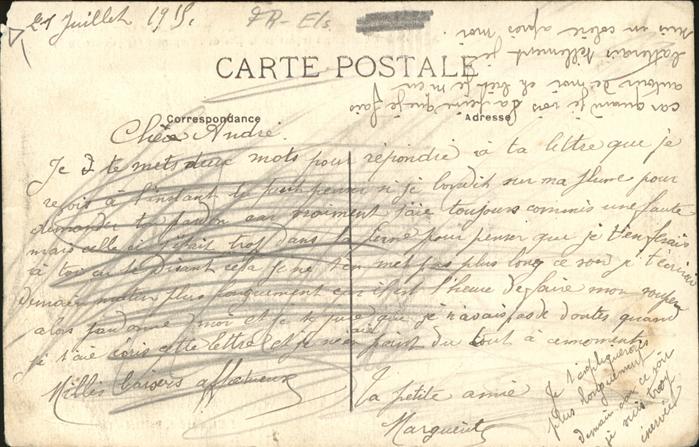 21 Juillet 1915.
FR-Els
CARTE POSTALE
Correspondance
Adresse
Chèr André.
Je te mets deux mots pour répondre à ta lettre que je
reçois à l'instant tu peut penser si je bondit sur ma plume pour
demander ton pardon car vraiment j'aie toujours commis une faute
mais celle ci était trop dans la pour penser que je t'en
à toi en te disant cela je ne t'en met pas plus long ce soir je t'écrirai
demain matin plus longuement car il est l'heure de faire mon souper
alors pardonne moi et je te jure que je n'avais pas de doutes quand
je t'aie écris cette lettre et je n'en aie point du tout à ce moment
Milles baisers affectueux
Ta petite amie
Marguerite
Je t'expliquerais
plus longuement
demain car ce soir
je suis trop
énervée
car quand je vois la peine que je fais
autour de moi et bien je m'en
tellement je
suis en colère après moi.